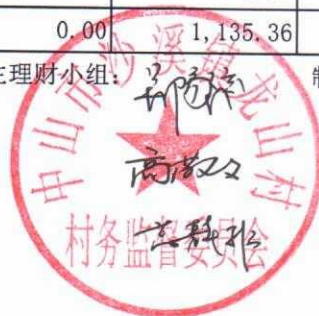 0.00 1,135.36
主理财小组： 制
中山市沙溪镇龙山村
村务监督委员会